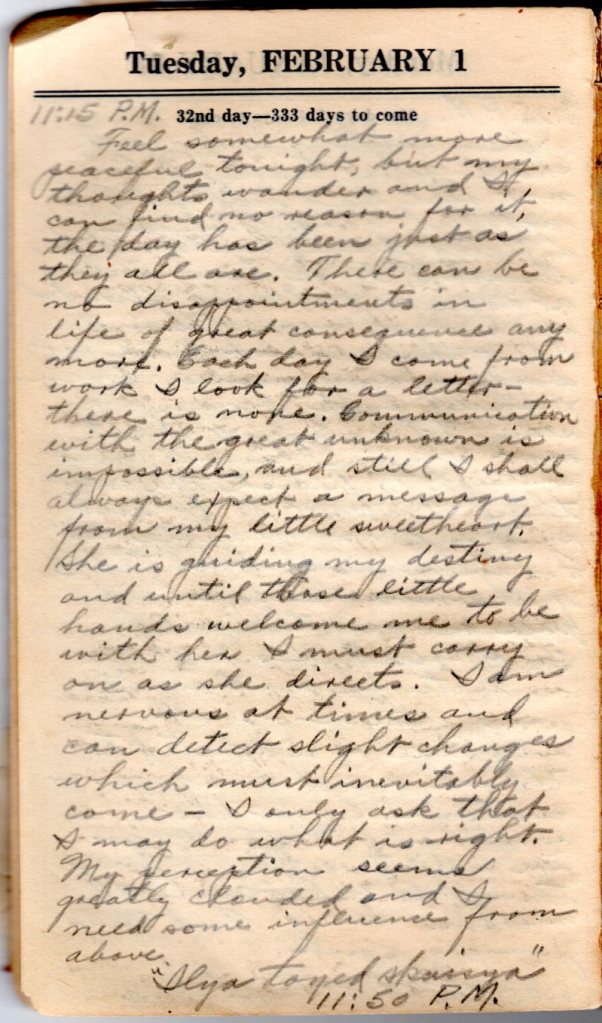 Tuesday, FEBRUARY 1
11:15 P.M. 32nd day—333 days to come
Feel somewhat more
peaceful tonight, but my
thoughts wander and I
can find no reason for it,
the day has been just as
they all are. There can be
no disappointments in
life of great consequence any
more. Each day I come from
work I look for a letter—
there is none. Communication
with the great unknown is
impossible, and still I shall
always expect a message
from my little sweetheart.
She is guiding my destiny
and until those little
hands welcome me to be
with her I must carry
on as she directs. I am
nervous at times and
can detect slight changes
which must inevitably
come – I only ask that
I may do what is right.
My perception seems
greatly clouded and I
need some influence from
above.
"Ilya
11:50 P.M.